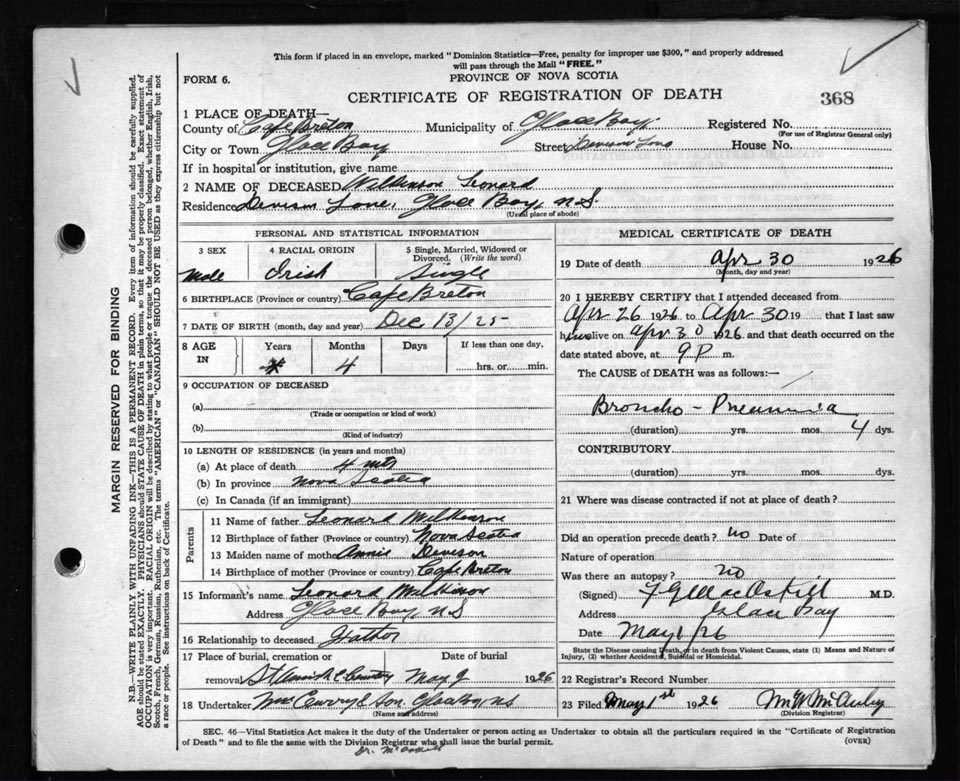 This form if placed in an envelope, marked "Dominion Statistics—Free, penalty for improper use $300," and properly addressed
will pass through the Mail "FREE."
FORM 6.
PROVINCE OF NOVA SCOTIA
CERTIFICATE OF REGISTRATION OF DEATH
368
1 PLACE OF DEATH—
County of Cape Breton Municipality of Glace Bay. Registered No.
(For use of Registrar General only)
City or Town Glace Bay Street Devison Lane House No.
If in hospital or institution, give name
2 NAME OF DECEASED Wilkinson Leonard
Residence Devison Lane, Glace Bay, N.S.
(Usual place of abode)
PERSONAL AND STATISTICAL INFORMATION
3 SEX 4 RACIAL ORIGIN 5 Single, Married, Widowed or
Divorced. (Write the word)
Male Irish Single
6 BIRTHPLACE (Province or country) Cape Breton
7 DATE OF BIRTH (month, day and year) Dec 13/25-
8 AGE IN Years Months Days If less than one day,
4 hrs. or min.
9 OCCUPATION OF DECEASED
(a)
(Trade or occupation or kind of work)
(b)
(Kind of industry)
10 LENGTH OF RESIDENCE (in years and months)
(a) At place of death 4 mts
(b) In province Nova Scotia
(c) In Canada (if an immigrant)
Parents
11 Name of father Leonard Wilkinson
12 Birthplace of father (Province or country) Nova Scotia
13 Maiden name of mother Annie Devison
14 Birthplace of mother (Province or country) Cape Breton
15 Informant's name Leonard Wilkinson
Address Glace Bay, N S
16 Relationship to deceased Father
17 Place of burial, cremation or Date of burial
removal Cemetery May 2 1926
18 Undertaker McCurry & Son Glace Bay, NS
(Name and address)
MEDICAL CERTIFICATE OF DEATH
19 Date of death Apr 30 1926
(Month, day and year)
20 I HEREBY CERTIFY that I attended deceased from
Apr 26 1926 to Apr 30 19 that I last saw
him alive on Apr 30 1926 and that death occurred on
date stated above, at 9 P m.
The CAUSE of DEATH was as follows:—
Broncho - Pneumonia
(duration) yrs. mos. 4 dys.
CONTRIBUTORY.
(duration) yrs. mos. dys.
21 Where was disease contracted if not at place of death?
Did an operation precede death? no Date of
Nature of operation
Was there an autopsy? no
(Signed) MacAskill M.D.
Address Glace Bay
Date May 1/26
State the Disease causing Death, or in death from Violent Causes, state (1) Means and Nature of
Injury, (2) whether Accidental, Suicidal or Homicidal.
22 Registrar's Record Number
23 Filed May 1st 1926 McAuley
(Division Registrar)
SEC. 46—Vital Statistics Act makes it the duty of the Undertaker or person acting as Undertaker to obtain all the particulars required in the "Certificate of Registration
of Death" and to file the same with the Division Registrar who shall issue the burial permit.
(OVER)
Dr. McAskill
MARGIN RESERVED FOR BINDING
N.B.—WRITE PLAINLY WITH UNFADING INK—THIS IS A PERMANENT RECORD. Every item of information should be carefully supplied.
AGE should be stated EXACTLY. PHYSICIANS should STATE CAUSE OF DEATH in plain terms, so that it may be properly classified. Exact statement of
OCCUPATION is very important. RACIAL ORIGIN will be described by stating to what people or tongue the deceased person belonged, whether English, Irish,
Scotch, French, German, Russian, Ruthenian, etc. The terms "AMERICAN" or "CANADIAN" SHOULD NOT BE USED as they express citizenship but not
a race or people. See instructions on back of Certificate.